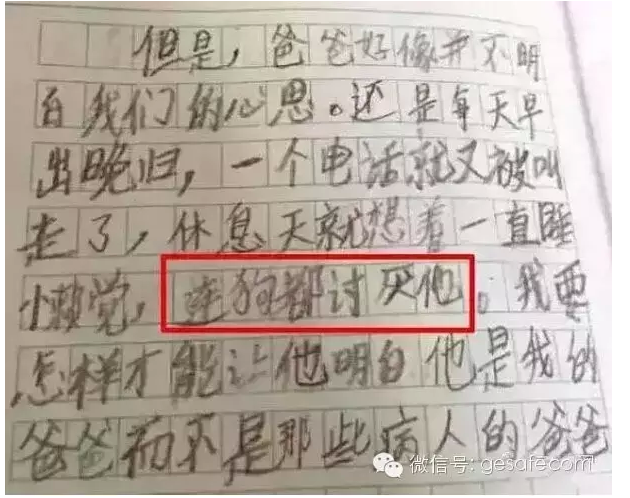 但是，爸爸好像并不明
白我们的心思。还是每天早
出晚归，一个电话就又被叫
走了，休息天就想着一直睡
懒觉，连狗都讨厌他。我要
怎样才能让他明白他是我的
爸爸而不是那些病人的爸爸
微信号: gesafecom